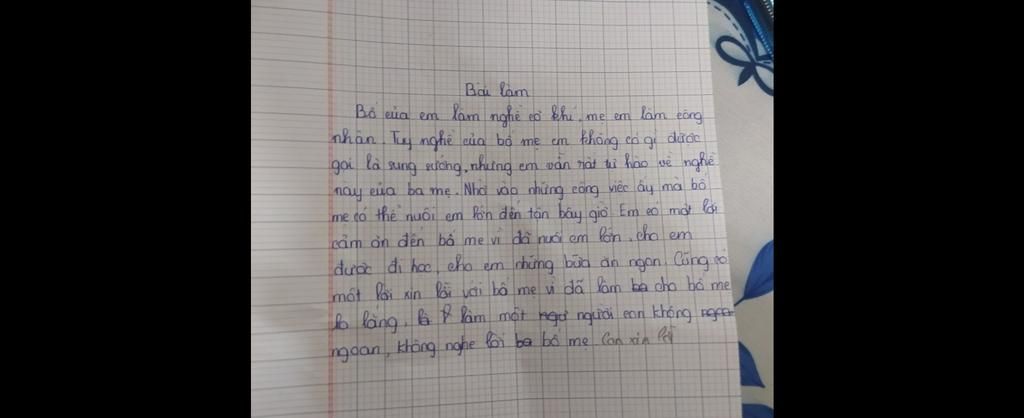 Bài làm
Bố của em làm nghề cơ khí, mẹ em làm công
nhân. Tuy nghề của bố mẹ em không có gì được
gọi là sung sướng, nhưng em vẫn rất tự hào về nghề
này của ba mẹ. Nhờ vào những công việc ấy mà bố
mẹ có thể nuôi em lớn đến tận bây giờ. Em có một lời
cảm ơn đến bố mẹ vì đã nuôi em lớn, cho em
được đi học, cho em những bữa ăn ngon. Cũng có
một lời xin lỗi với bố mẹ vì đã làm cho bố mẹ
lo lắng, là làm một người con không
ngoan, không nghe lời bố mẹ. Con xin lỗi